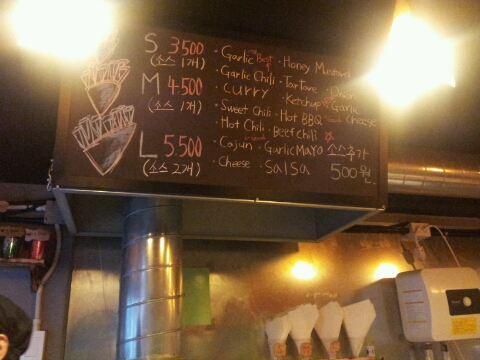 S 3.500
(소스 1개)
M 4.500
(소스 1개)
L 5.500
(소스 2개)
· Garlic Best · Honey Mustard
· Garlic Chili · Tartare
· Curry · Ketchup
· Onion Garlic
· Sweet Chili · Hot BBQ · Cheese
· Hot Chili · Beef chili
· Cajun · Garlic Mayo
· Cheese · Salsa
소스추가
500원